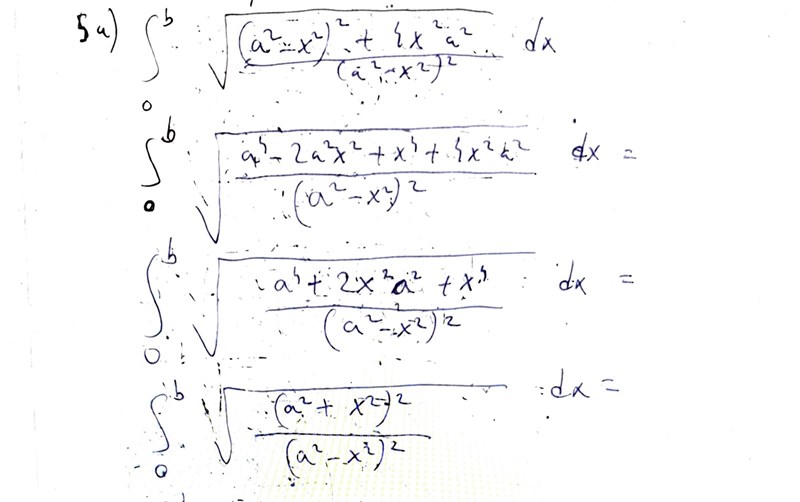 5a) ∫₀ᵇ √(((a²-x²)² + 4x²a²)/(a²-x²)²) dx
∫₀ᵇ √((a⁴ - 2a²x² + x⁴ + 4x²a²)/(a²-x²)²) dx =
∫₀ᵇ √((a⁴ + 2x²a² + x⁴)/(a²-x²)²) dx =
∫₀ᵇ √((a² + x²)²/(a²-x²)²) dx =